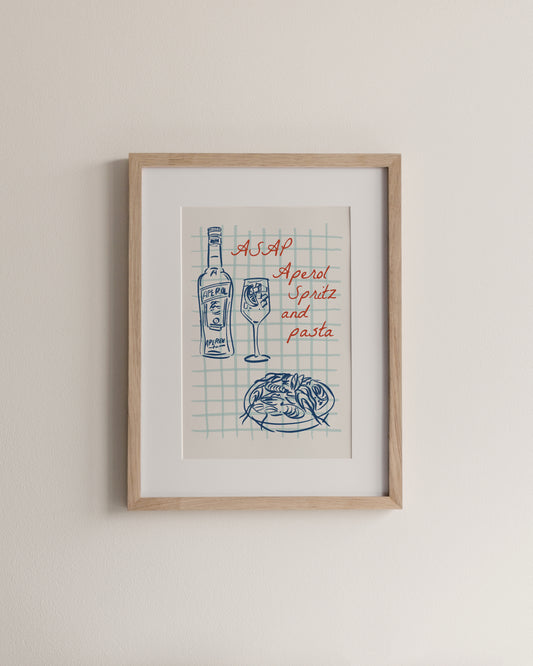 ASAP
Aperol
Spritz
and
pasta
APEROL